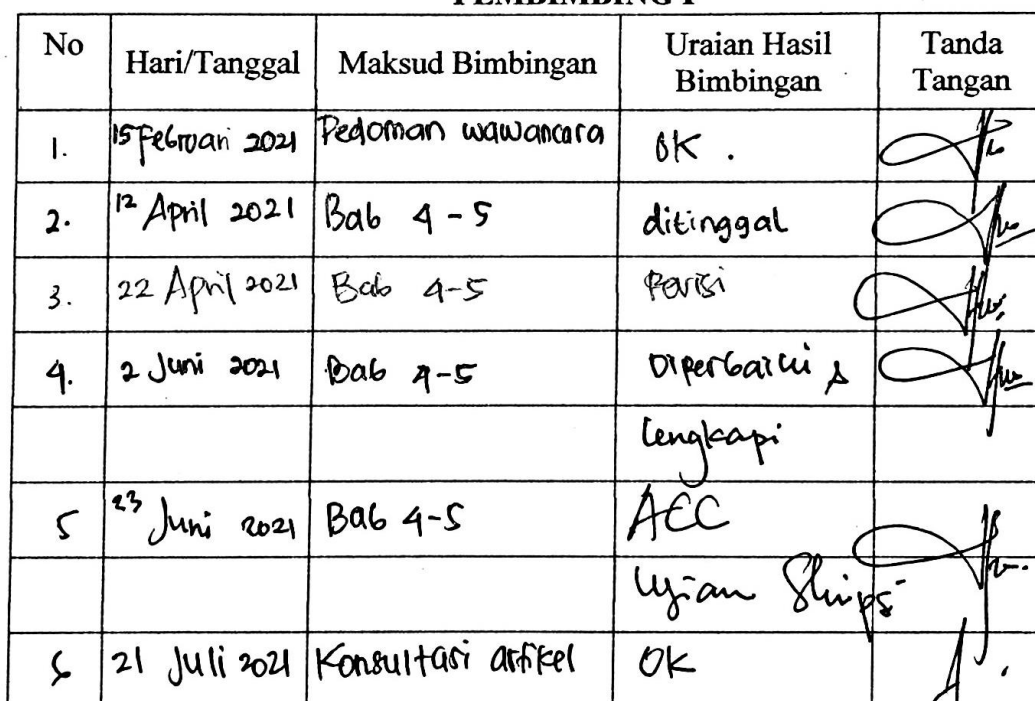 PEMBIMBING I
No Hari/Tanggal Maksud Bimbingan Uraian Hasil Bimbingan Tanda Tangan
1. 15 Februari 2021 Pedoman wawancara OK.
2. 12 April 2021 Bab 4-5 ditinggal
3. 22 April 2021 Bab 4-5 Revisi
4. 2 Juni 2021 Bab 4-5 Diperbaiki &
lengkapi
5 23 Juni 2021 Bab 4-5 ACC
Ujian Skripsi
6 21 Juli 2021 Konsultasi artikel OK